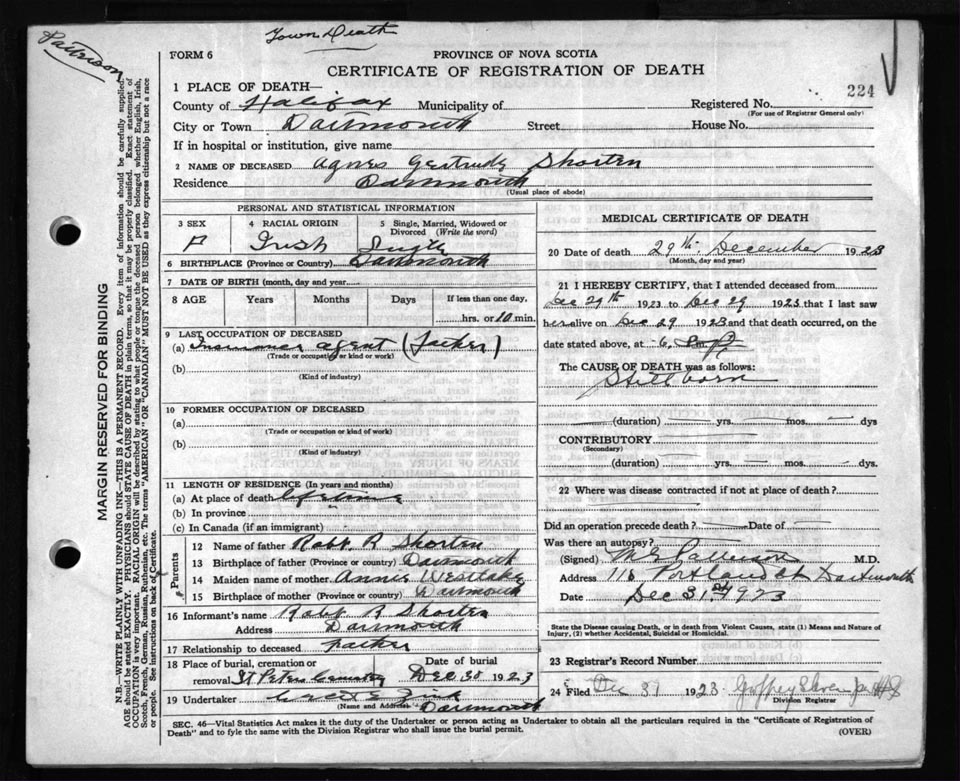 Patterson
Town Death
FORM 6
PROVINCE OF NOVA SCOTIA
CERTIFICATE OF REGISTRATION OF DEATH
224
1 PLACE OF DEATH—
County of Halifax Municipality of Registered No.
(For use of Registrar General only)
City or Town Dartmouth Street House No.
If in hospital or institution, give name
2 NAME OF DECEASED Agnes Gertrude Shorten
Residence Dartmouth
(Usual place of abode)
PERSONAL AND STATISTICAL INFORMATION
3 SEX 4 RACIAL ORIGIN 5 Single, Married, Widowed or Divorced (Write the word)
F Irish Single
6 BIRTHPLACE (Province or Country) Dartmouth
7 DATE OF BIRTH (month, day and year)
8 AGE Years Months Days If less than one day,
hrs. or 10 min.
9 LAST OCCUPATION OF DECEASED
(a) agent (Father)
(Trade or occupation or kind of work)
(b)
(Kind of industry)
10 FORMER OCCUPATION OF DECEASED
(a)
(Trade or occupation or kind of work)
(b)
(Kind of industry)
11 LENGTH OF RESIDENCE (In years and months)
(a) At place of death lifetime
(b) In province
(c) In Canada (if an immigrant)
Parents
12 Name of father Robt. R Shorten
13 Birthplace of father (Province or country) Dartmouth
14 Maiden name of mother Annie Westlake
15 Birthplace of mother (Province or country) Dartmouth
16 Informant's name Robt R Shorten
Address Dartmouth
17 Relationship to deceased father
18 Place of burial, cremation or removal St Peters Cemetery Date of burial Dec 30 1923
19 Undertaker
(Name and Address) Dartmouth
MEDICAL CERTIFICATE OF DEATH
20 Date of death 29th December 1923
(Month, day and year)
21 I HEREBY CERTIFY, that I attended deceased from
Dec 29th 1923 to Dec 29 1923 that I last saw
her alive on Dec 29 1923 and that death occurred, on
date stated above, at 6
The CAUSE OF DEATH was as follows:
Stillborn
(duration) yrs. mos. dys
CONTRIBUTORY
(Secondary)
(duration) yrs. mos. dys.
22 Where was disease contracted if not at place of death?
Did an operation precede death? Date of
Was there an autopsy?
(Signed) M G Patterson M.D.
Address 116 Portland St Dartmouth
Date Dec 31st 1923
State the Disease causing Death, or in death from Violent Causes, state (1) Means and Nature of
Injury, (2) whether Accidental, Suicidal or Homicidal.
23 Registrar's Record Number
24 Filed Dec 31 1923
Division Registrar
SEC. 46—Vital Statistics Act makes it the duty of the Undertaker or person acting as Undertaker to obtain all the particulars required in the "Certificate of Registration of
Death" and to fyle the same with the Division Registrar who shall issue the burial permit.
(OVER)
MARGIN RESERVED FOR BINDING
N.B.—WRITE PLAINLY WITH UNFADING INK—THIS IS A PERMANENT RECORD. Every item of information should be carefully supplied.
AGE should be stated EXACTLY. PHYSICIANS should STATE CAUSE OF DEATH in plain terms, so that it may be properly classified. Exact statement of
OCCUPATION is very important. RACIAL ORIGIN will be described by stating to what people or tongue the deceased person belonged whether English, Irish,
Scotch, French, German, Russian, Ruthenian, etc. The terms "AMERICAN" or "CANADIAN" MUST NOT BE USED as they express citizenship but not a race
or people. See instructions on back of Certificate.